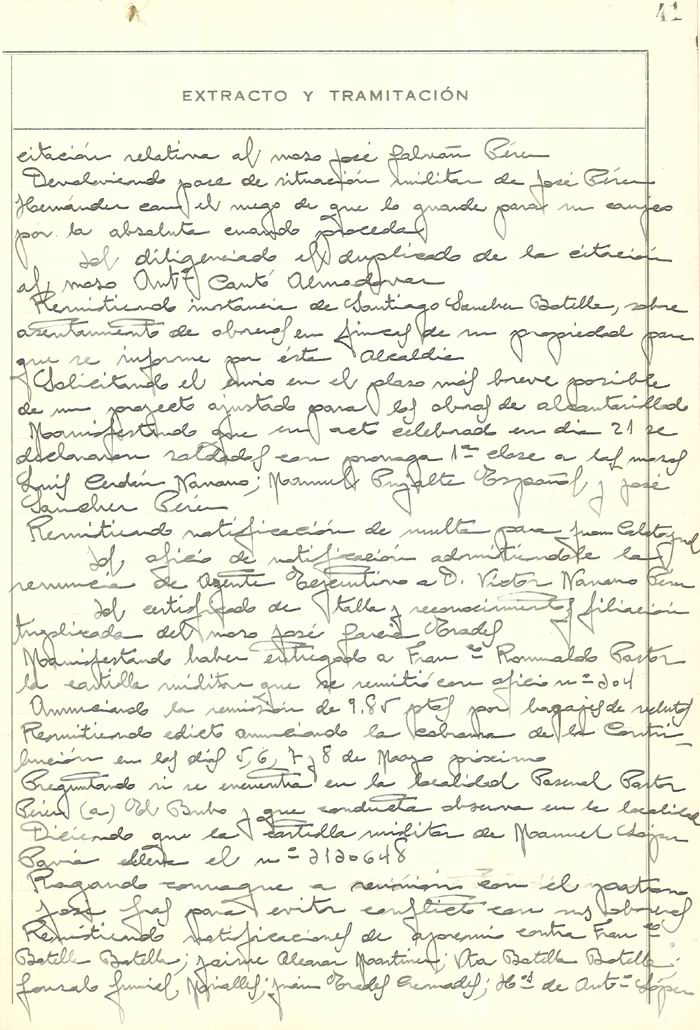 41
EXTRACTO Y TRAMITACIÓN
citación relativa al mozo José Galvañ Pérez
Devolviendo pase de situación militar de José Pérez
Hernández con el ruego de que lo guarde para su canjeo
por la absoluta cuando proceda
Id diligenciado el duplicado de la citación
al mozo Antº Cantó Almodovar
Remitiendo instancia de Santiago Sanchez Botella, sobre
asentamiento de obreros en fincas de su propiedad para
que se informe por ésta Alcaldia
Solicitando el envio en el plazo más breve posible
de un proyecto ajustado para las obras de alcantarillado
Manifestando que en acto celebrado en dia 21 se
declararon soldados con prorroga 1ª clase a los mozos
Luis Cerdán Navarro; Manuel Pujalte Español y José
Sanchez Pérez
Remitiendo notificación de multa para Juan Calatayud
Id oficio de notificación admitiendole la
renuncia de Agente Ejecutivo a D. Victor Navarro Pérez
Id certificado de talla y reconocimiento y filiación
triplicada del mozo José Garcia Prades
Manifestando haber entregado a Franco Romualdo Pastor
la cartilla militar que se remitió con oficio nº 204
Anunciando la remisión de 9.85 ptas por bagajes de reclutas
Remitiendo edicto anunciando la cobranza de la Contri-
bución en los dias 5, 6, 7 y 8 de Mayo próximo
Preguntando si se encuentra en la localidad Pascual Pastor
Pérez (a) El Bubo y que conducta observa en la localidad
Diciendo que la cartilla militar de Manuel López
Pavia lleva el nº 2120648
Rogando comunique a reunión con el patrono
José Gras para evitar conflicto con sus obreros
Remitiendo notificaciones de apremio contra Franco
Botella Botella; Jaime Alcaraz Martinez; Vta Botella Botella;
Gonzalo Juan Prades Cremades; Hos de Antº López